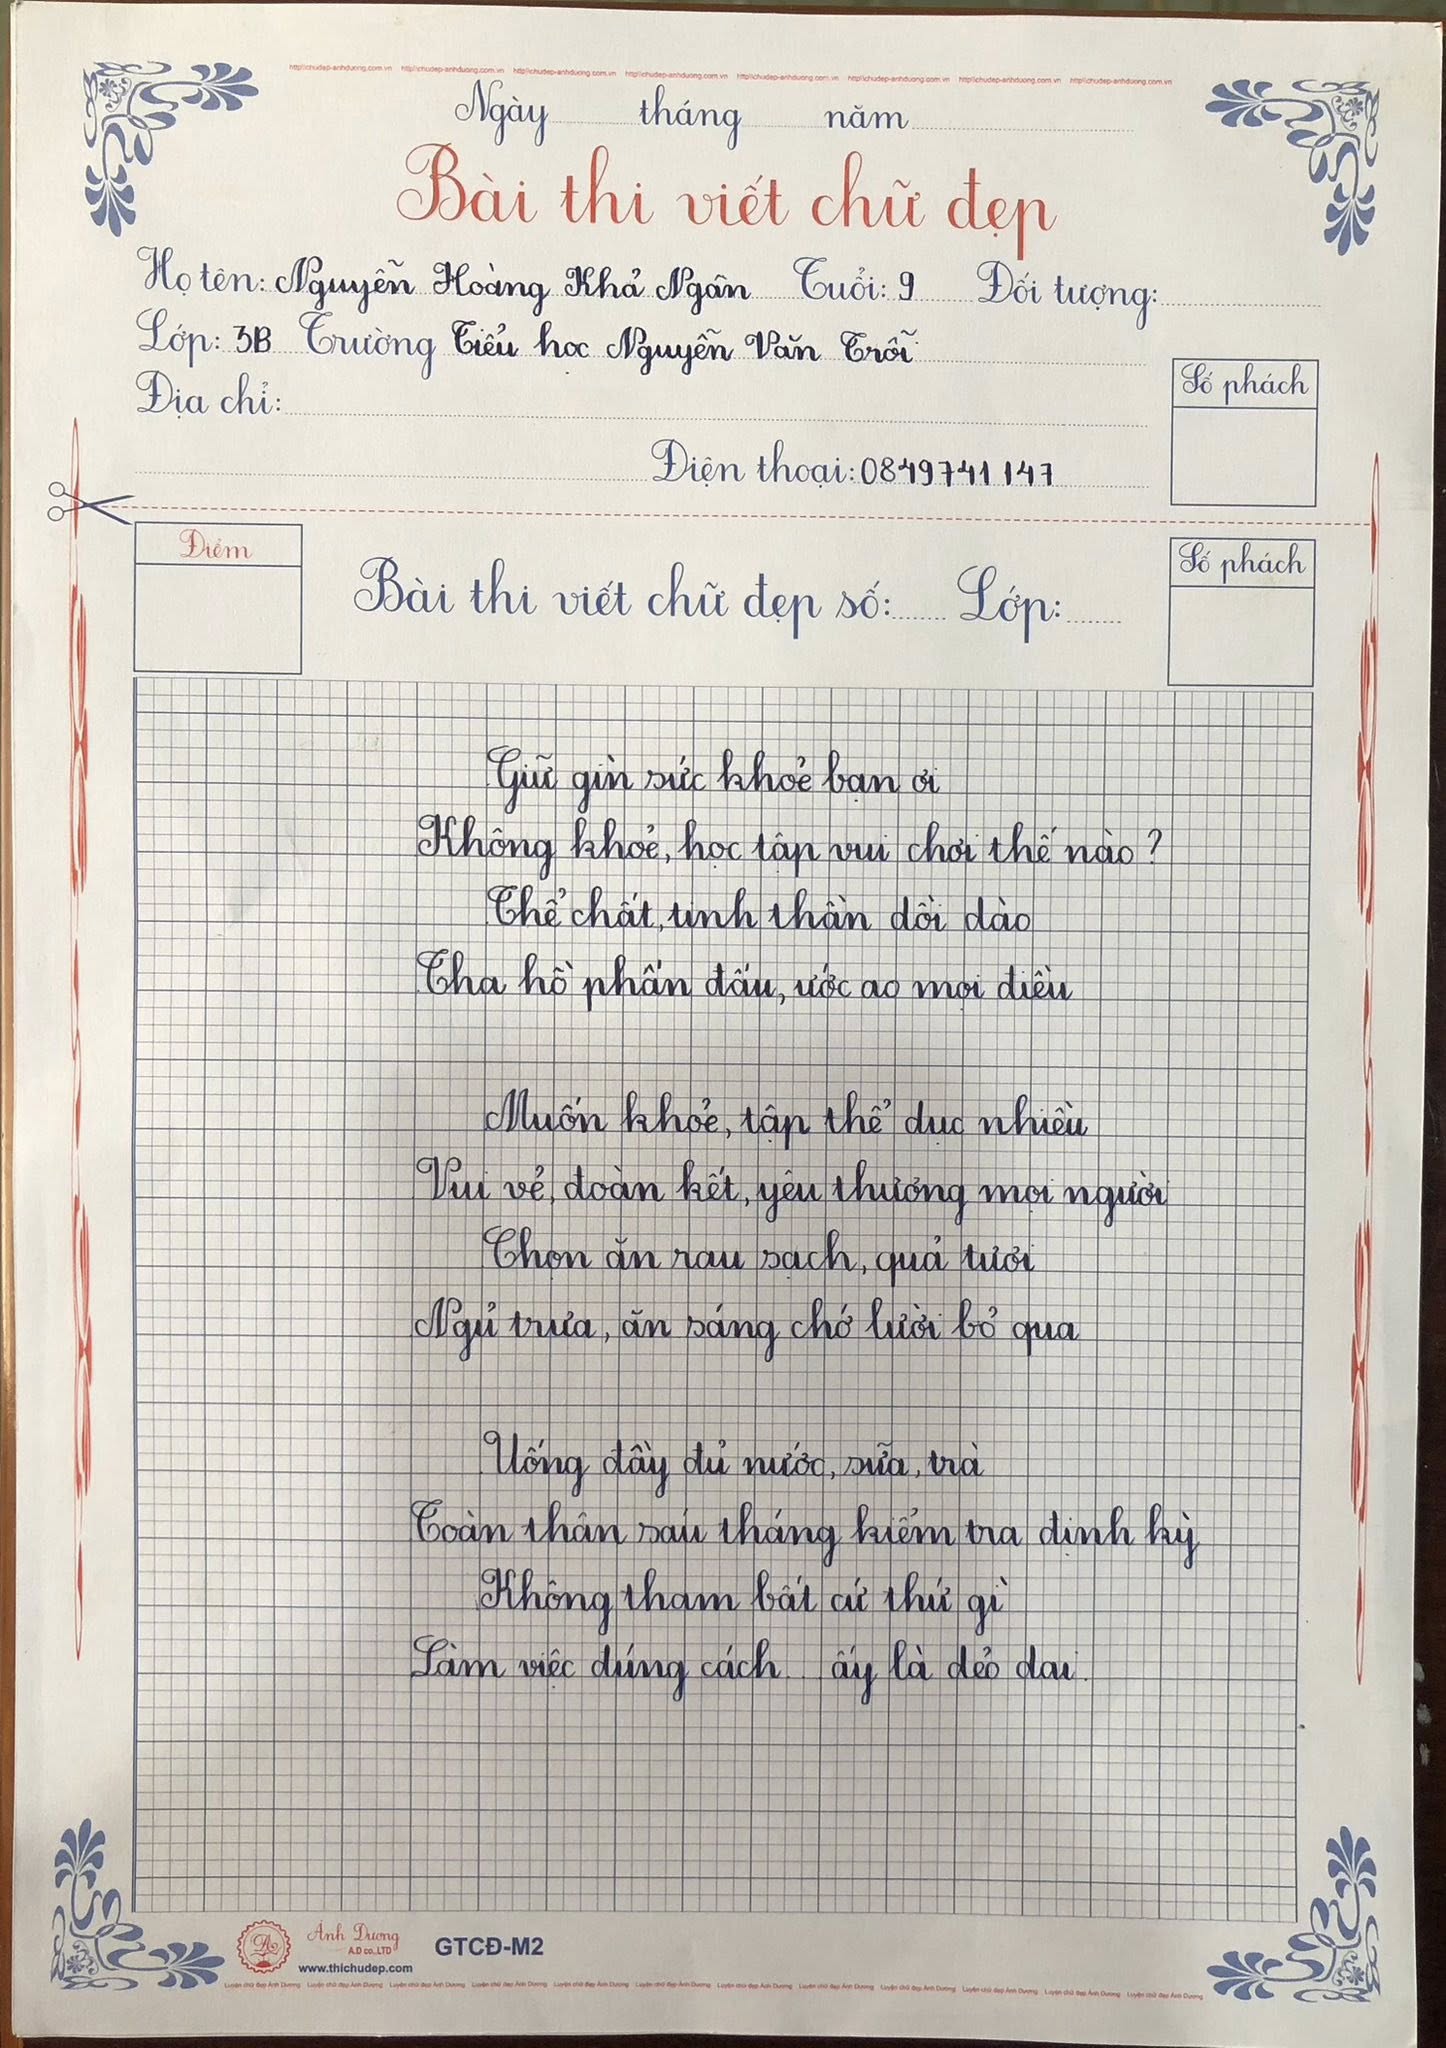 http\\chudep-anhduong.com.vn http\\chudep-anhduong.com.vn http\\chudep-anhduong.com.vn http\\chudep-anhduong.com.vn http\\chudep-anhduong.com.vn http\\chudep-anhduong.com.vn http\\chudep-anhduong.com.vn http\\chudep-anhduong.com.vn
Ngày tháng năm
Bài thi viết chữ đẹp
Họ tên: Nguyễn Hoàng Khả Ngân Tuổi: 9 Đối tượng:
Lớp: 3B Trường Tiểu học Nguyễn Văn Trỗi
Số phách
Địa chỉ:
Điện thoại: 0849741147
Điểm
Số phách
Bài thi viết chữ đẹp số: Lớp:
Giữ gìn sức khoẻ bạn ơi
Không khoẻ, học tập vui chơi thế nào?
Thể chất, tinh thần dồi dào
Tha hồ phấn đấu, ước ao mọi điều
Muốn khoẻ, tập thể dục nhiều
Vui vẻ, đoàn kết, yêu thương mọi người
Chọn ăn rau sạch, quả tươi
Ngủ trưa, ăn sáng chớ lười bỏ qua
Uống đầy đủ nước, sữa, trà
Toàn thân sáu tháng kiểm tra định kỳ
Không tham bất cứ thứ gì
Làm việc đúng cách... ấy là dẻo dai.
Ánh Dương
A.D co.,LTD
www.thichudep.com
GTCĐ-M2
Luyện chữ đẹp Ánh Dương Luyện chữ đẹp Ánh Dương Luyện chữ đẹp Ánh Dương Luyện chữ đẹp Ánh Dương Luyện chữ đẹp Ánh Dương Luyện chữ đẹp Ánh Dương Luyện chữ đẹp Ánh Dương Luyện chữ đẹp Ánh Dương Luyện chữ đẹp Ánh Dương Luyện chữ đẹp Ánh Dương Luyện chữ đẹp Ánh Dương Luyện chữ đẹp Ánh Dương